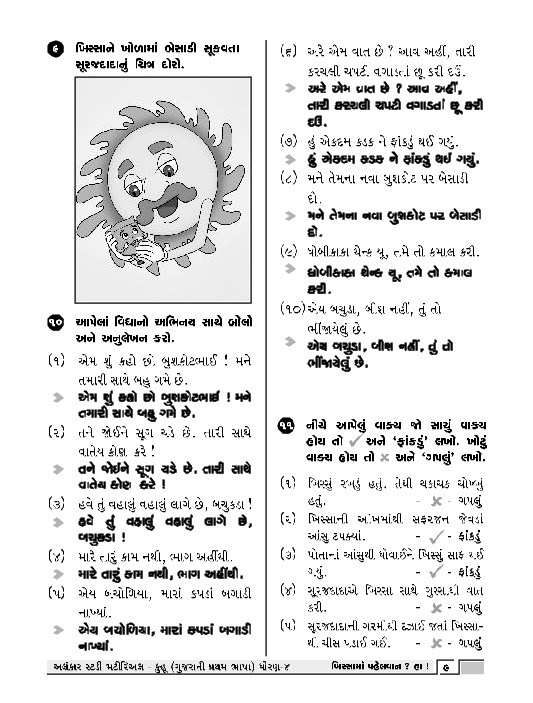 ૯ ખિસ્સાને ખોળામાં બેસાડી સૂકવતા
સૂરજદાદાનું ચિત્ર દોરો.
૧૦ આપેલાં વિધાનો અભિનય સાથે બોલો
અને અનુલેખન કરો.
(૧) એમ શું કહો છો બુશકોટભાઈ ! મને
તમારી સાથે બહુ ગમે છે.
➢ એમ શું કહો છો બુશકોટભાઈ ! મને
તમારી સાથે બહુ ગમે છે.
(૨) તને જોઈને સૂગ ચડે છે. તારી સાથે
વાતેય કોણ કરે !
➢ તને જોઈને સૂગ ચડે છે. તારી સાથે
વાતેય કોણ કરે !
(૩) હવે તું વહાલું વહાલું લાગે છે, બચુકડા !
➢ હવે તું વહાલું વહાલું લાગે છે,
બચુકડા !
(૪) મારે તારું કામ નથી, ભાગ અહીંથી.
➢ મારે તારું કામ નથી, ભાગ અહીંથી.
(૫) એય બચોળિયા, મારાં કપડાં બગાડી
નાખ્યાં.
➢ એય બચોળિયા, મારાં કપડાં બગાડી
નાખ્યાં.
(૬) અરે એમ વાત છે ? આવ અહીં, તારી
કરચલી ચપટી વગાડતાં છૂ કરી દઉં.
➢ અરે એમ વાત છે ? આવ અહીં,
તારી કરચલી ચપટી વગાડતાં છૂ કરી
દઉં.
(૭) હું એકદમ કડક ને ફાંકડું થઈ ગયું.
➢ હું એકદમ કડક ને ફાંકડું થઈ ગયું.
(૮) મને તેમના નવા બુશકોટ પર બેસાડી
દો.
➢ મને તેમના નવા બુશકોટ પર બેસાડી
દો.
(૯) ધોબીકાકા થેન્ક યૂ, તમે તો કમાલ કરી.
➢ ધોબીકાકા થેન્ક યૂ, તમે તો કમાલ
કરી.
(૧૦) એય બચુડા, બીશ નહીં, તું તો
ભીંજાયેલું છે.
➢ એય બચુડા, બીશ નહીં, તું તો
ભીંજાયેલું છે.
૧૧ નીચે આપેલું વાક્ય જો સાચું વાક્ય
હોય તો ✓ અને ‘ફાંકડું’ લખો. ખોટું
વાક્ય હોય તો ✗ અને ‘ગપલું’ લખો.
(૧) ખિસ્સું રખડું હતું. તેથી ચકાચક ચોખ્ખું
હતું. - ✗ - ગપલું
(૨) ખિસ્સાની આંખમાંથી સફરજન જેવડાં
આંસુ ટપક્યાં. - ✓ - ફાંકડું
(૩) પોતાનાં આંસુથી ધોવાઈને ખિસ્સું સાફ થઈ
ગયું. - ✓ - ફાંકડું
(૪) સૂરજદાદાએ ખિસ્સા સાથે ગુસ્સાથી વાત
કરી. - ✗ - ગપલું
(૫) સૂરજદાદાની ગરમીથી દઝાઈ જતાં ખિસ્સા-
થી ચીસ પડાઈ ગઈ. - ✗ - ગપલું
અલંકાર સ્ટડી મટીરિઅલ - કુહૂ (ગુજરાતી પ્રથમ ભાષા) ધોરણ-૪ ખિસ્સામાં પહેલવાન ? હા ! ૯